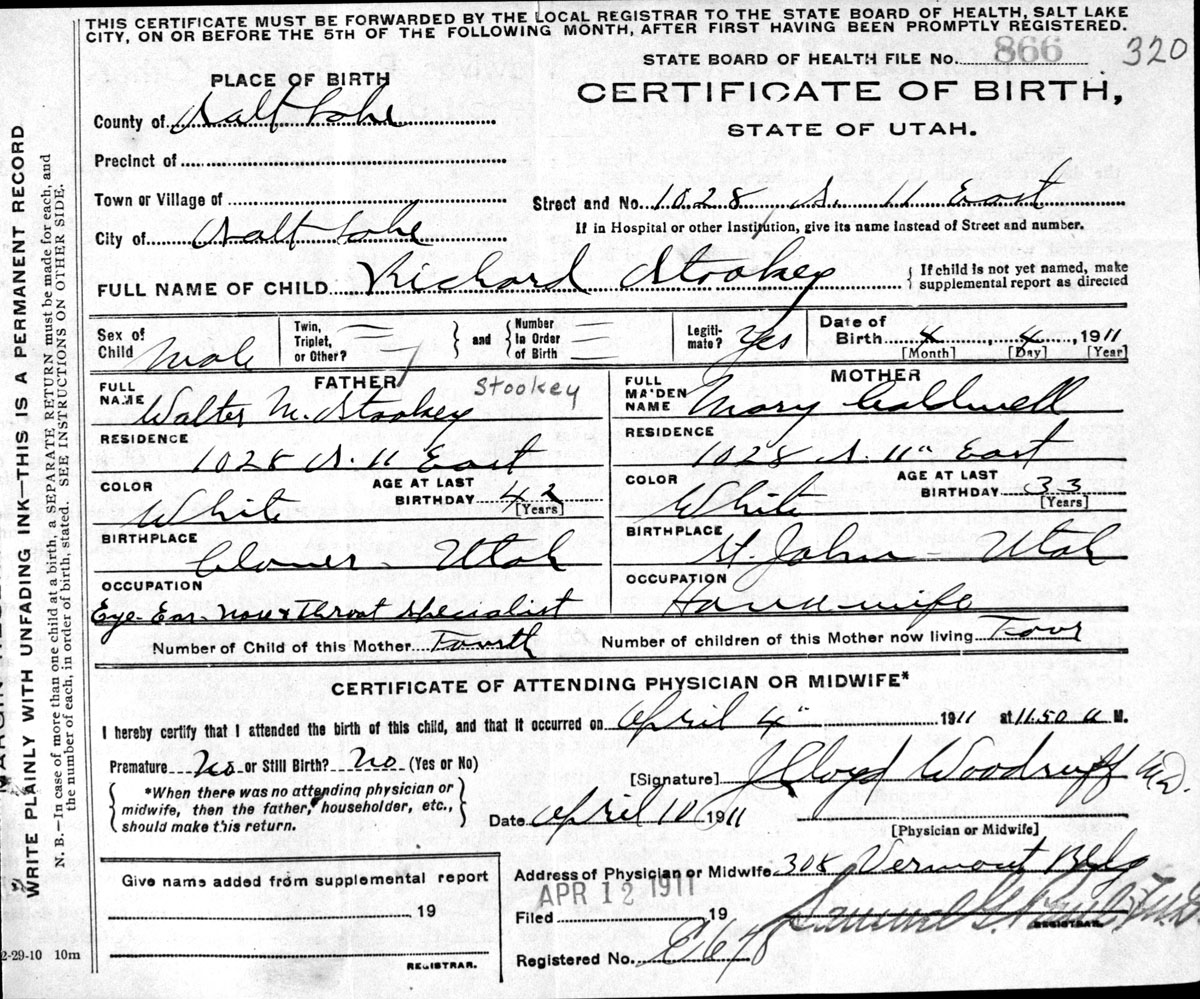 THIS CERTIFICATE MUST BE FORWARDED BY THE LOCAL REGISTRAR TO THE STATE BOARD OF HEALTH, SALT LAKE
CITY, ON OR BEFORE THE 5TH OF THE FOLLOWING MONTH, AFTER FIRST HAVING BEEN PROMPTLY REGISTERED.
STATE BOARD OF HEALTH FILE No. 866 320
PLACE OF BIRTH
CERTIFICATE OF BIRTH,
STATE OF UTAH.
County of Salt Lake
Precinct of
Town or Village of
Street and No. 1028 S. 11 East
City of Salt Lake
If in Hospital or other Institution, give its name instead of Street and number.
FULL NAME OF CHILD Richard Stookey
{ If child is not yet named, make
supplemental report as directed
Sex of
Child Male
Twin,
Triplet,
or Other?
} and {
Number
in Order
of Birth
Legiti-
mate? Yes
Date of
Birth 4, 4, 1911
[Month] [Day] [Year]
FATHER
Stookey
FULL
NAME Walter M. Stookey
RESIDENCE
1028 S. 11 East
COLOR White
AGE AT LAST
BIRTHDAY 42
[Years]
BIRTHPLACE
Clover - Utah
OCCUPATION
Eye-Ear-Nose & Throat Specialist
MOTHER
FULL
MAIDEN
NAME Mary Caldwell
RESIDENCE
1028 S. 11" East
COLOR White
AGE AT LAST
BIRTHDAY 33
[Years]
BIRTHPLACE
St. John - Utah
OCCUPATION
Housewife
Number of Child of this Mother Fourth
Number of children of this Mother now living Four
CERTIFICATE OF ATTENDING PHYSICIAN OR MIDWIFE*
I hereby certify that I attended the birth of this child, and that it occurred on April 4" 1911 at 11.50 a M.
Premature No or Still Birth? No (Yes or No)
{ *When there was no attending physician or
midwife, then the father, householder, etc.,
should make this return. }
[Signature] Lloyd Woodruff M.D.
Date April 10 1911
[Physician or Midwife]
Give name added from supplemental report
19
REGISTRAR.
Address of Physician or Midwife 308 Vermont Bldg
APR 12 1911
Filed 19
Samuel G.
REGISTRAR.
Registered No.
2-29-10 10m
WRITE PLAINLY WITH UNFADING INK—THIS IS A PERMANENT RECORD
N. B.—In case of more than one child at a birth, a SEPARATE RETURN must be made for each, and
the number of each, in order of birth, stated. SEE INSTRUCTIONS ON OTHER SIDE.